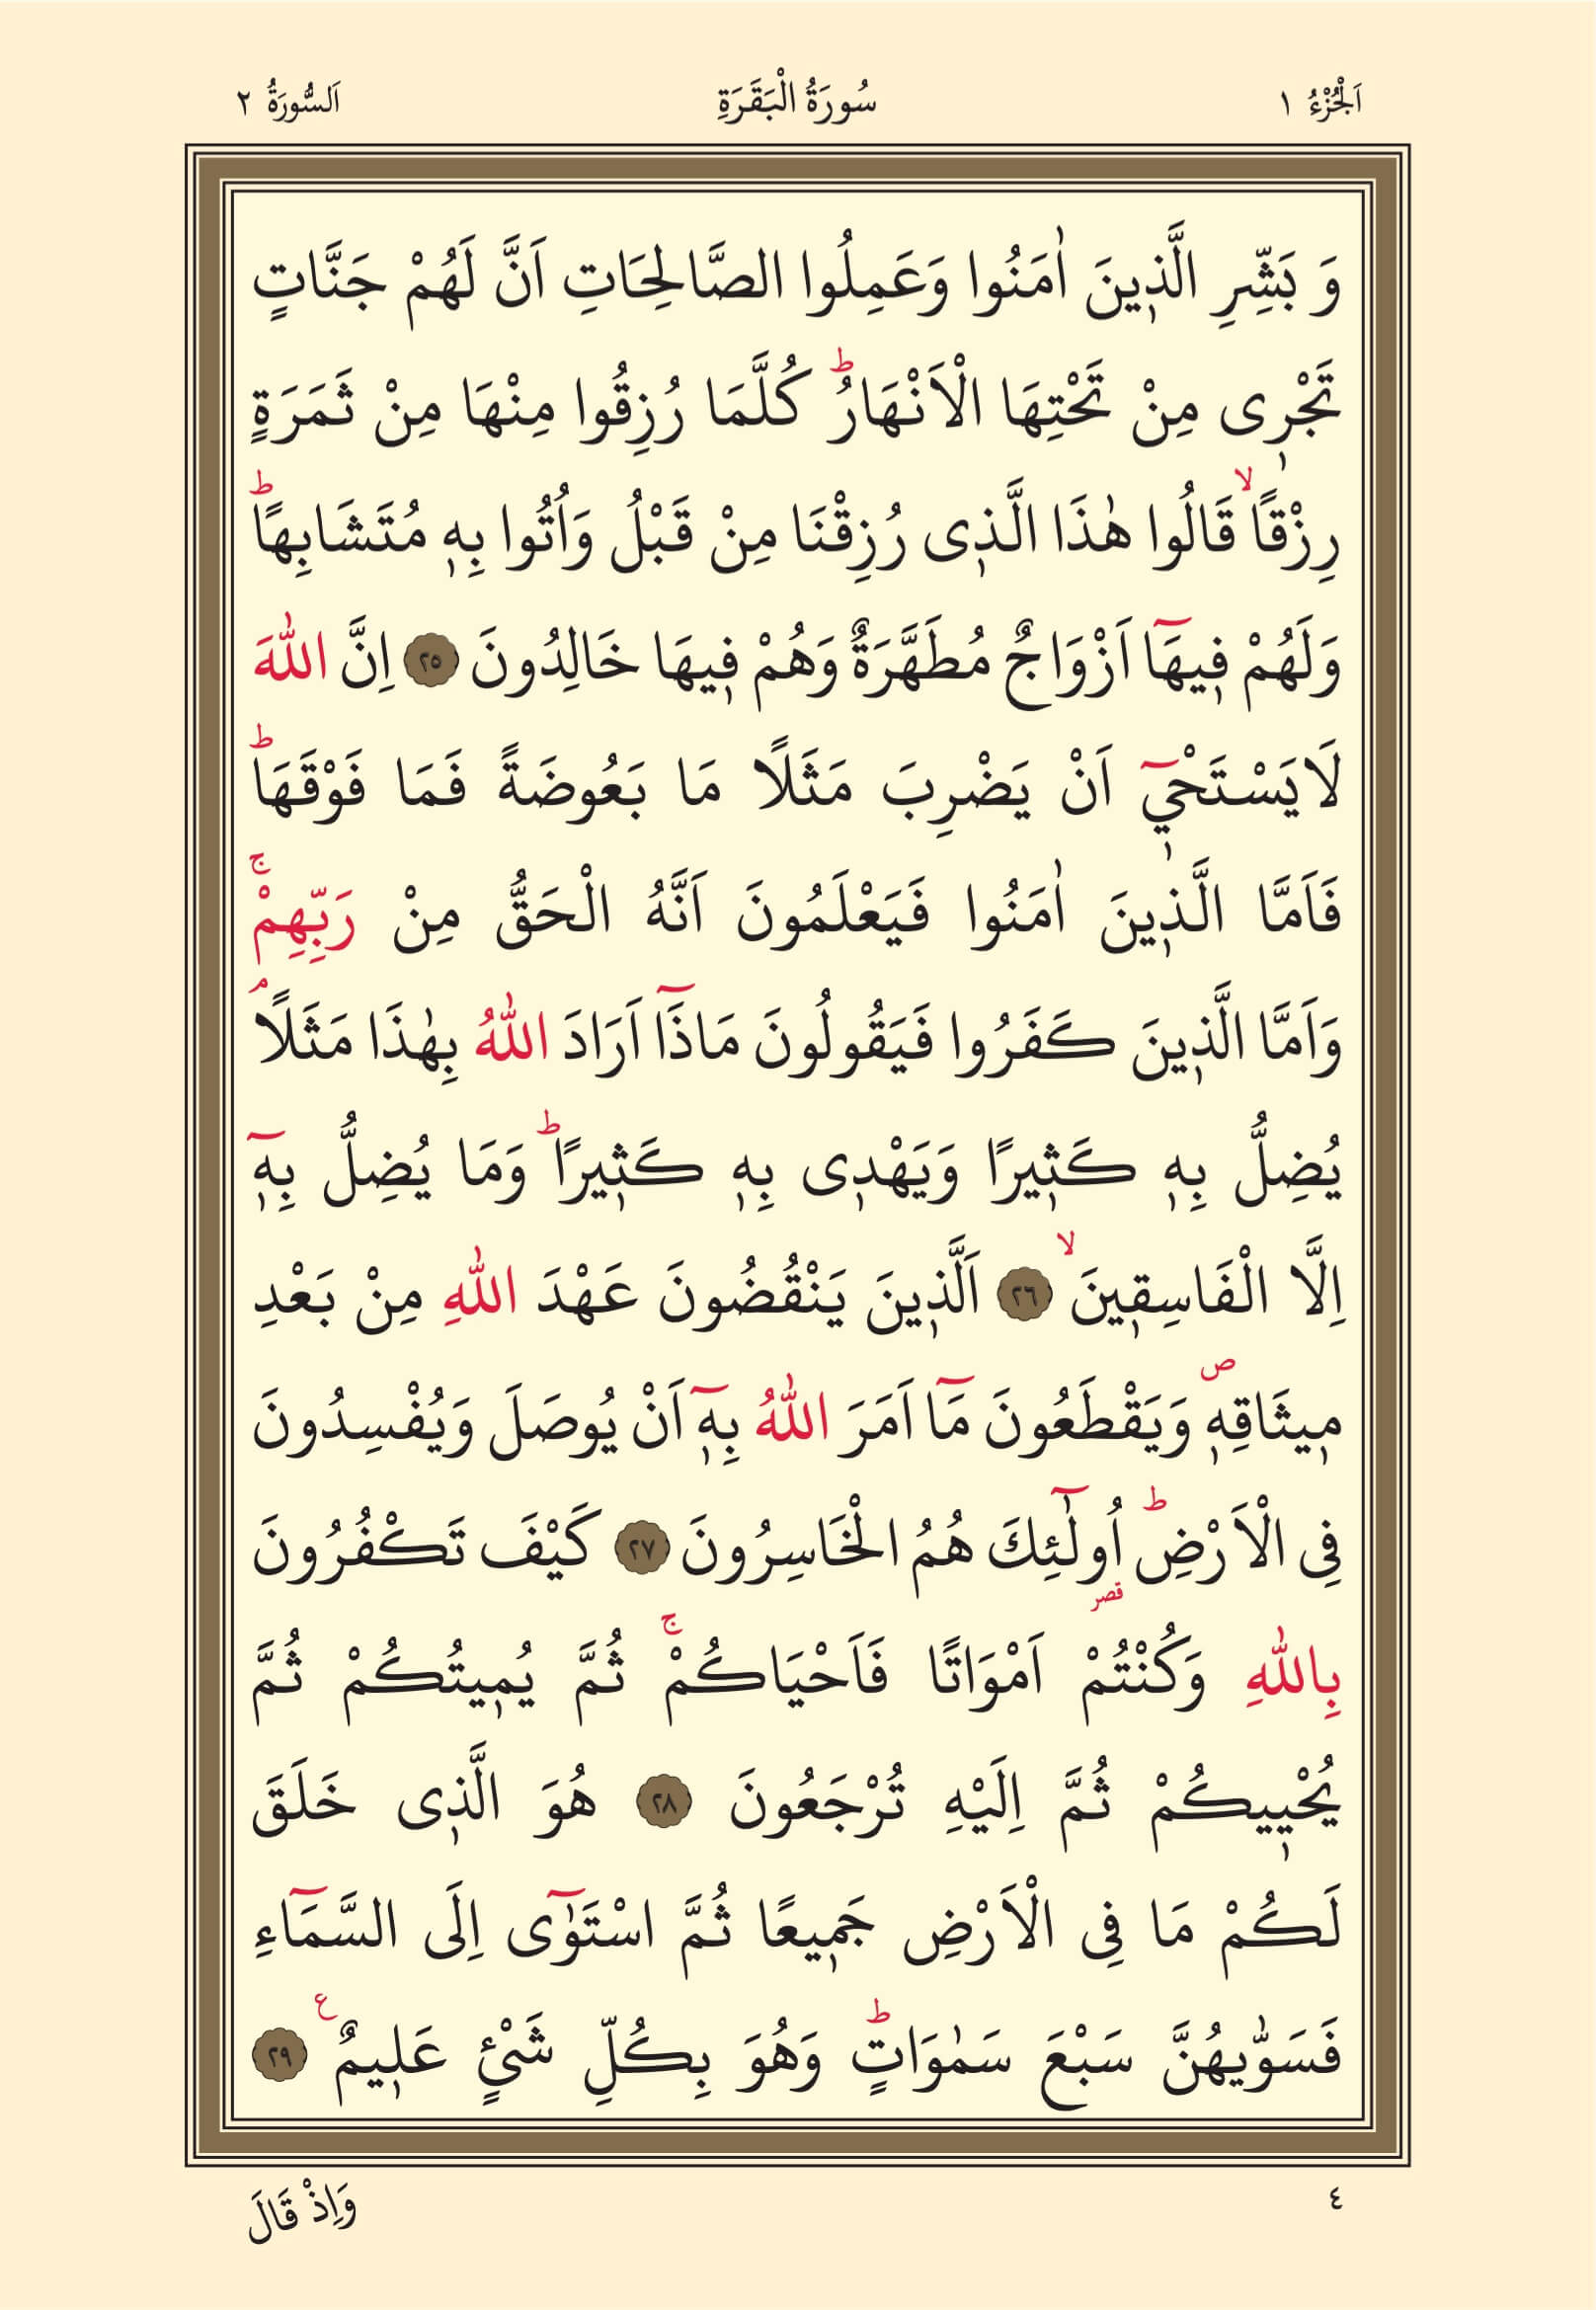 اَلْجُزْءُ ١ سُورَةُ الْبَقَرَةِ اَلسُّورَةُ ٢
وَ بَشِّرِ الَّذ۪ينَ اٰمَنُوا وَعَمِلُوا الصَّالِحَاتِ اَنَّ لَهُمْ جَنَّاتٍ
تَجْر۪ى مِنْ تَحْتِهَا الْاَنْهَارُۜ كُلَّمَا رُزِقُوا مِنْهَا مِنْ ثَمَرَةٍ
رِزْقًاۙ قَالُوا هٰذَا الَّذ۪ى رُزِقْنَا مِنْ قَبْلُ وَاُتُوا بِه۪ مُتَشَابِهًاۜ
وَلَهُمْ ف۪يهَٓا اَزْوَاجٌ مُطَهَّرَةٌ وَهُمْ ف۪يهَا خَالِدُونَ ﴿٢٥﴾ اِنَّ اللّٰهَ
لَايَسْتَحْي۪ٓ اَنْ يَضْرِبَ مَثَلًا مَا بَعُوضَةً فَمَا فَوْقَهَاۜ
فَاَمَّا الَّذ۪ينَ اٰمَنُوا فَيَعْلَمُونَ اَنَّهُ الْحَقُّ مِنْ رَبِّهِمْۚ
وَاَمَّا الَّذ۪ينَ كَفَرُوا فَيَقُولُونَ مَاذَٓا اَرَادَ اللّٰهُ بِهٰذَا مَثَلًاۢ
يُضِلُّ بِه۪ كَث۪يرًا وَيَهْد۪ى بِه۪ كَث۪يرًاۜ وَمَا يُضِلُّ بِه۪ٓ
اِلَّا الْفَاسِق۪ينَۙ ﴿٢٦﴾ اَلَّذ۪ينَ يَنْقُضُونَ عَهْدَ اللّٰهِ مِنْ بَعْدِ
م۪يثَاقِه۪ۖ وَيَقْطَعُونَ مَٓا اَمَرَ اللّٰهُ بِه۪ٓ اَنْ يُوصَلَ وَيُفْسِدُونَ
فِى الْاَرْضِۜ اُولٰٓئِكَ هُمُ الْخَاسِرُونَ ﴿٢٧﴾ كَيْفَ تَكْفُرُونَ
قصر
بِاللّٰهِ وَكُنْتُمْ اَمْوَاتًا فَاَحْيَاكُمْۚ ثُمَّ يُم۪يتُكُمْ ثُمَّ
يُحْي۪يكُمْ ثُمَّ اِلَيْهِ تُرْجَعُونَ ﴿٢٨﴾ هُوَ الَّذ۪ى خَلَقَ
لَكُمْ مَا فِى الْاَرْضِ جَم۪يعًا ثُمَّ اسْتَوٰٓى اِلَى السَّمَٓاءِ
فَسَوّٰيهُنَّ سَبْعَ سَمٰوَاتٍۜ وَهُوَ بِكُلِّ شَيْئٍ عَل۪يمٌ ع ﴿٢٩﴾
٤ وَاِذْ قَالَ